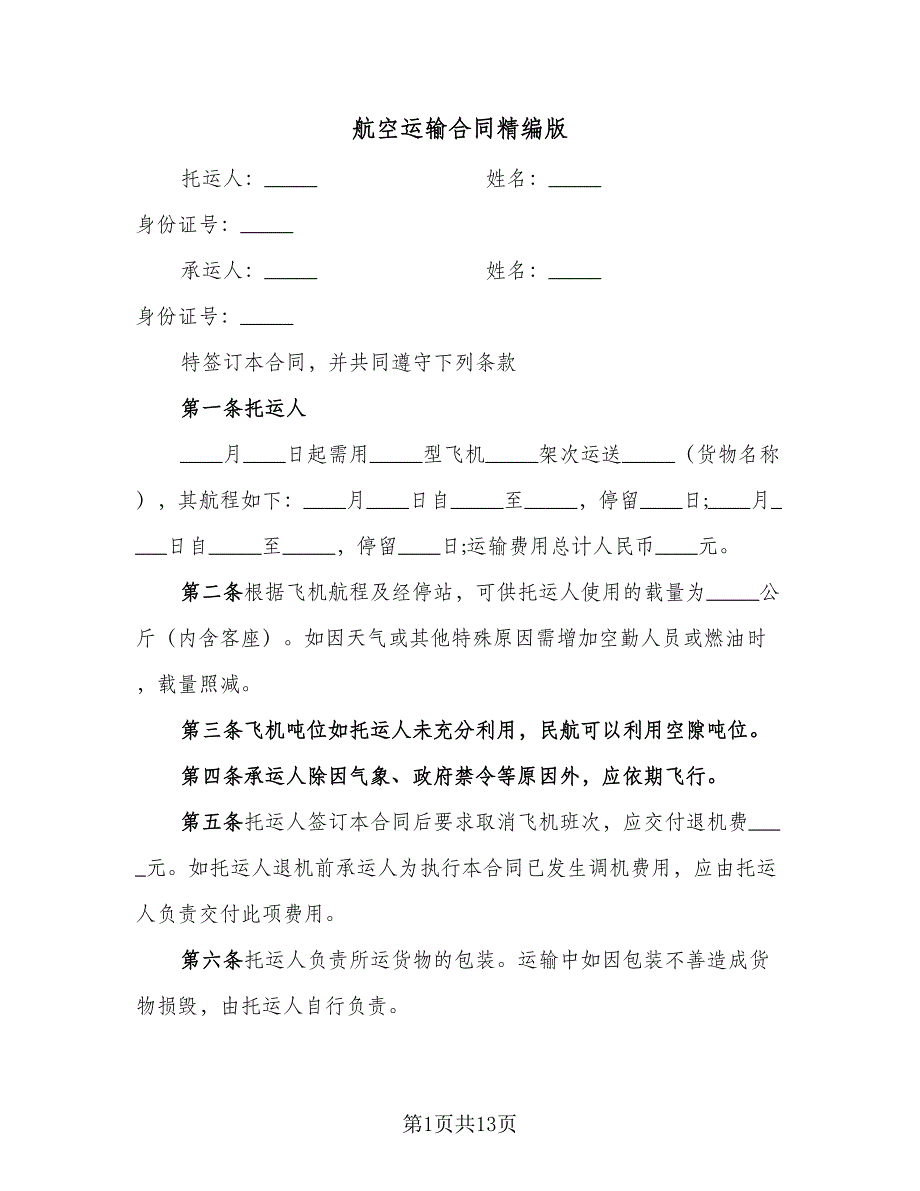 航空运输合同精编版
托运人：_____ 姓名：_____
身份证号：_____
承运人：_____ 姓名：_____
身份证号：_____
特签订本合同，并共同遵守下列条款
第一条托运人
____月____日起需用_____型飞机_____架次运送_____（货物名称
），其航程如下：____月____日自_____至_____，停留____日;____月_
___日自_____至_____，停留____日;运输费用总计人民币____元。
第二条根据飞机航程及经停站，可供托运人使用的载量为_____公
斤（内含客座）。如因天气或其他特殊原因需增加空勤人员或燃油时
，载量照减。
第三条飞机吨位如托运人未充分利用，民航可以利用空隙吨位。
第四条承运人除因气象、政府禁令等原因外，应依期飞行。
第五条托运人签订本合同后要求取消飞机班次，应交付退机费___
_元。如托运人退机前承运人为执行本合同已发生调机费用，应由托运
人负责交付此项费用。
第六条托运人负责所运货物的包装。运输中如因包装不善造成货
物损毁，由托运人自行负责。
第1页共13页